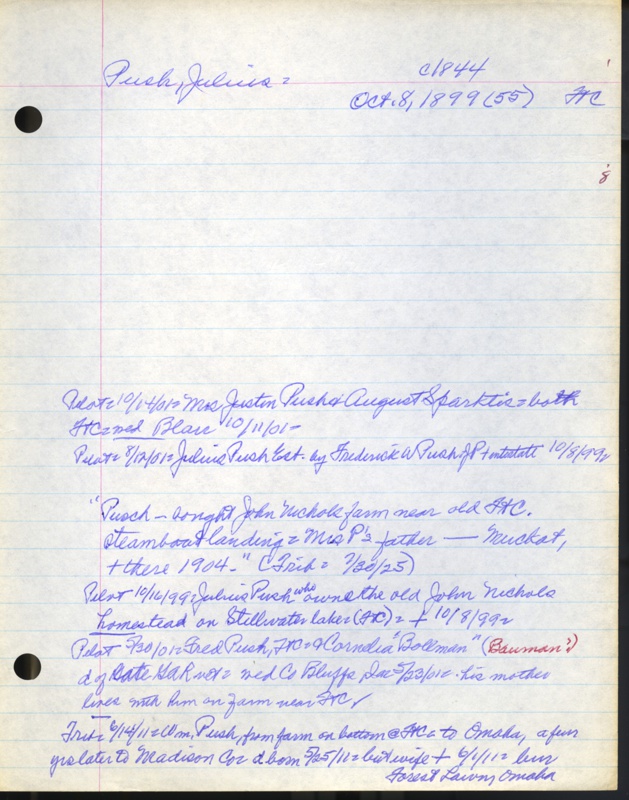 Push, Julius = c1844
Oct. 8, 1899 (55) FtC
8
Pilot = 10/14/01 = Mrs Justin Push & August Sparktis = both
FtC = wed Blair 10/11/01 =
Pilot = 8/12/01 = Julius Push Est. by Frederick W Push JP + intestate 10/8/99=
"Pusch — bought John Nichols farm near old FtC.
steamboat landing = Mrs P's father — Muchat,
+ there 1904." (Trib = 7/30/25)
Pilot 10/16/99 = Julius Push who owns the old John Nichols
homestead on Stillwater lake = (FtC) = + 10/8/99=
Pilot 5/30/01 = Fred Push, FtC = & Cornelia "Bollman" (Bauman?)
d of late GAR vet = wed Co Bluffs, Ia = 5/23/01 = his mother
lives with him on farm near FtC ✓
Trib = 6/14/11 = Wm. Push, from farm on bottom @ FtC = to Omaha, a few
yrs later to Madison Co = d born 5/25/11 = but wife + 6/1/11 = bur
Forest Lawn, Omaha